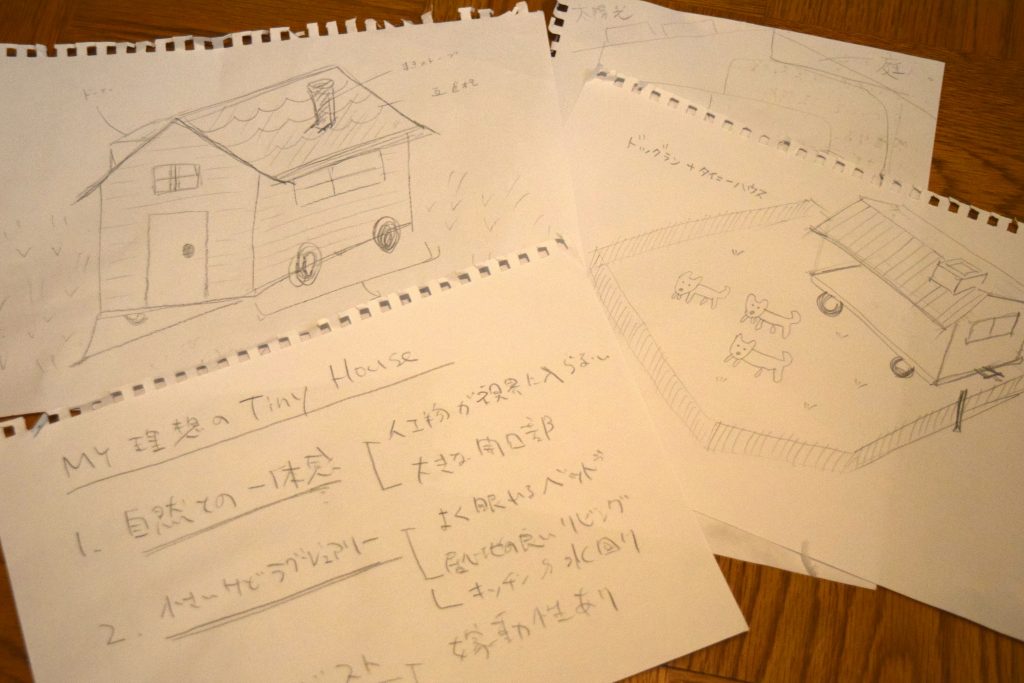 まきストーブ
太陽光
庭
ドッグラン + タイニーハウス
MY 理想の Tiny House
1. 自然との一体感
人工物が視界に入らない
大きな開口部
2. 小さいけどラグジュアリー
よく眠れるベッド
居心地の良いリビング
キッチン 水回り
稼動性あり